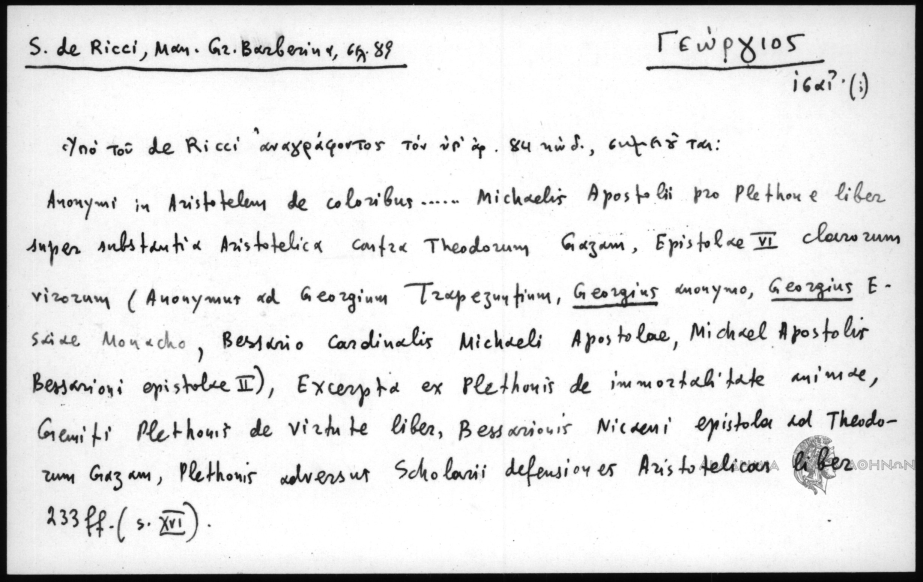 S. de Ricci, Man. Gr. Barberina, σελ. 89
Γεώργιος
ἰσαί?·(i)
Ὑπό τοῦ de Ricci ἀναγράφοντος τόν ὑπ' ἀρ. 84 κώδ., σημειοῦται:
Anonymi in Aristotelem de coloribus ...... Michaelis Apostolii pro Plethone liber
super substantia Aristotelica contra Theodorum Gazam, Epistolae VI clarorum
virorum (Anonymus ad Georgium Trapezuntium, Georgius anonymo, Georgius E-
saiae Monacho, Bessario Cardinalis Michaeli Apostolae, Michael Apostolis
Bessarioni epistolae II), Excerpta ex Plethonis de immortalitate animae,
Gemiti Plethonis de virtute liber, Bessarionis Nicaeni epistola ad Theodo-
rum Gazam, Plethonis adversus Scholarii defensiones Aristotelicas liber
233 ff. (s. XVI).
ΑΘΗΝΩΝ